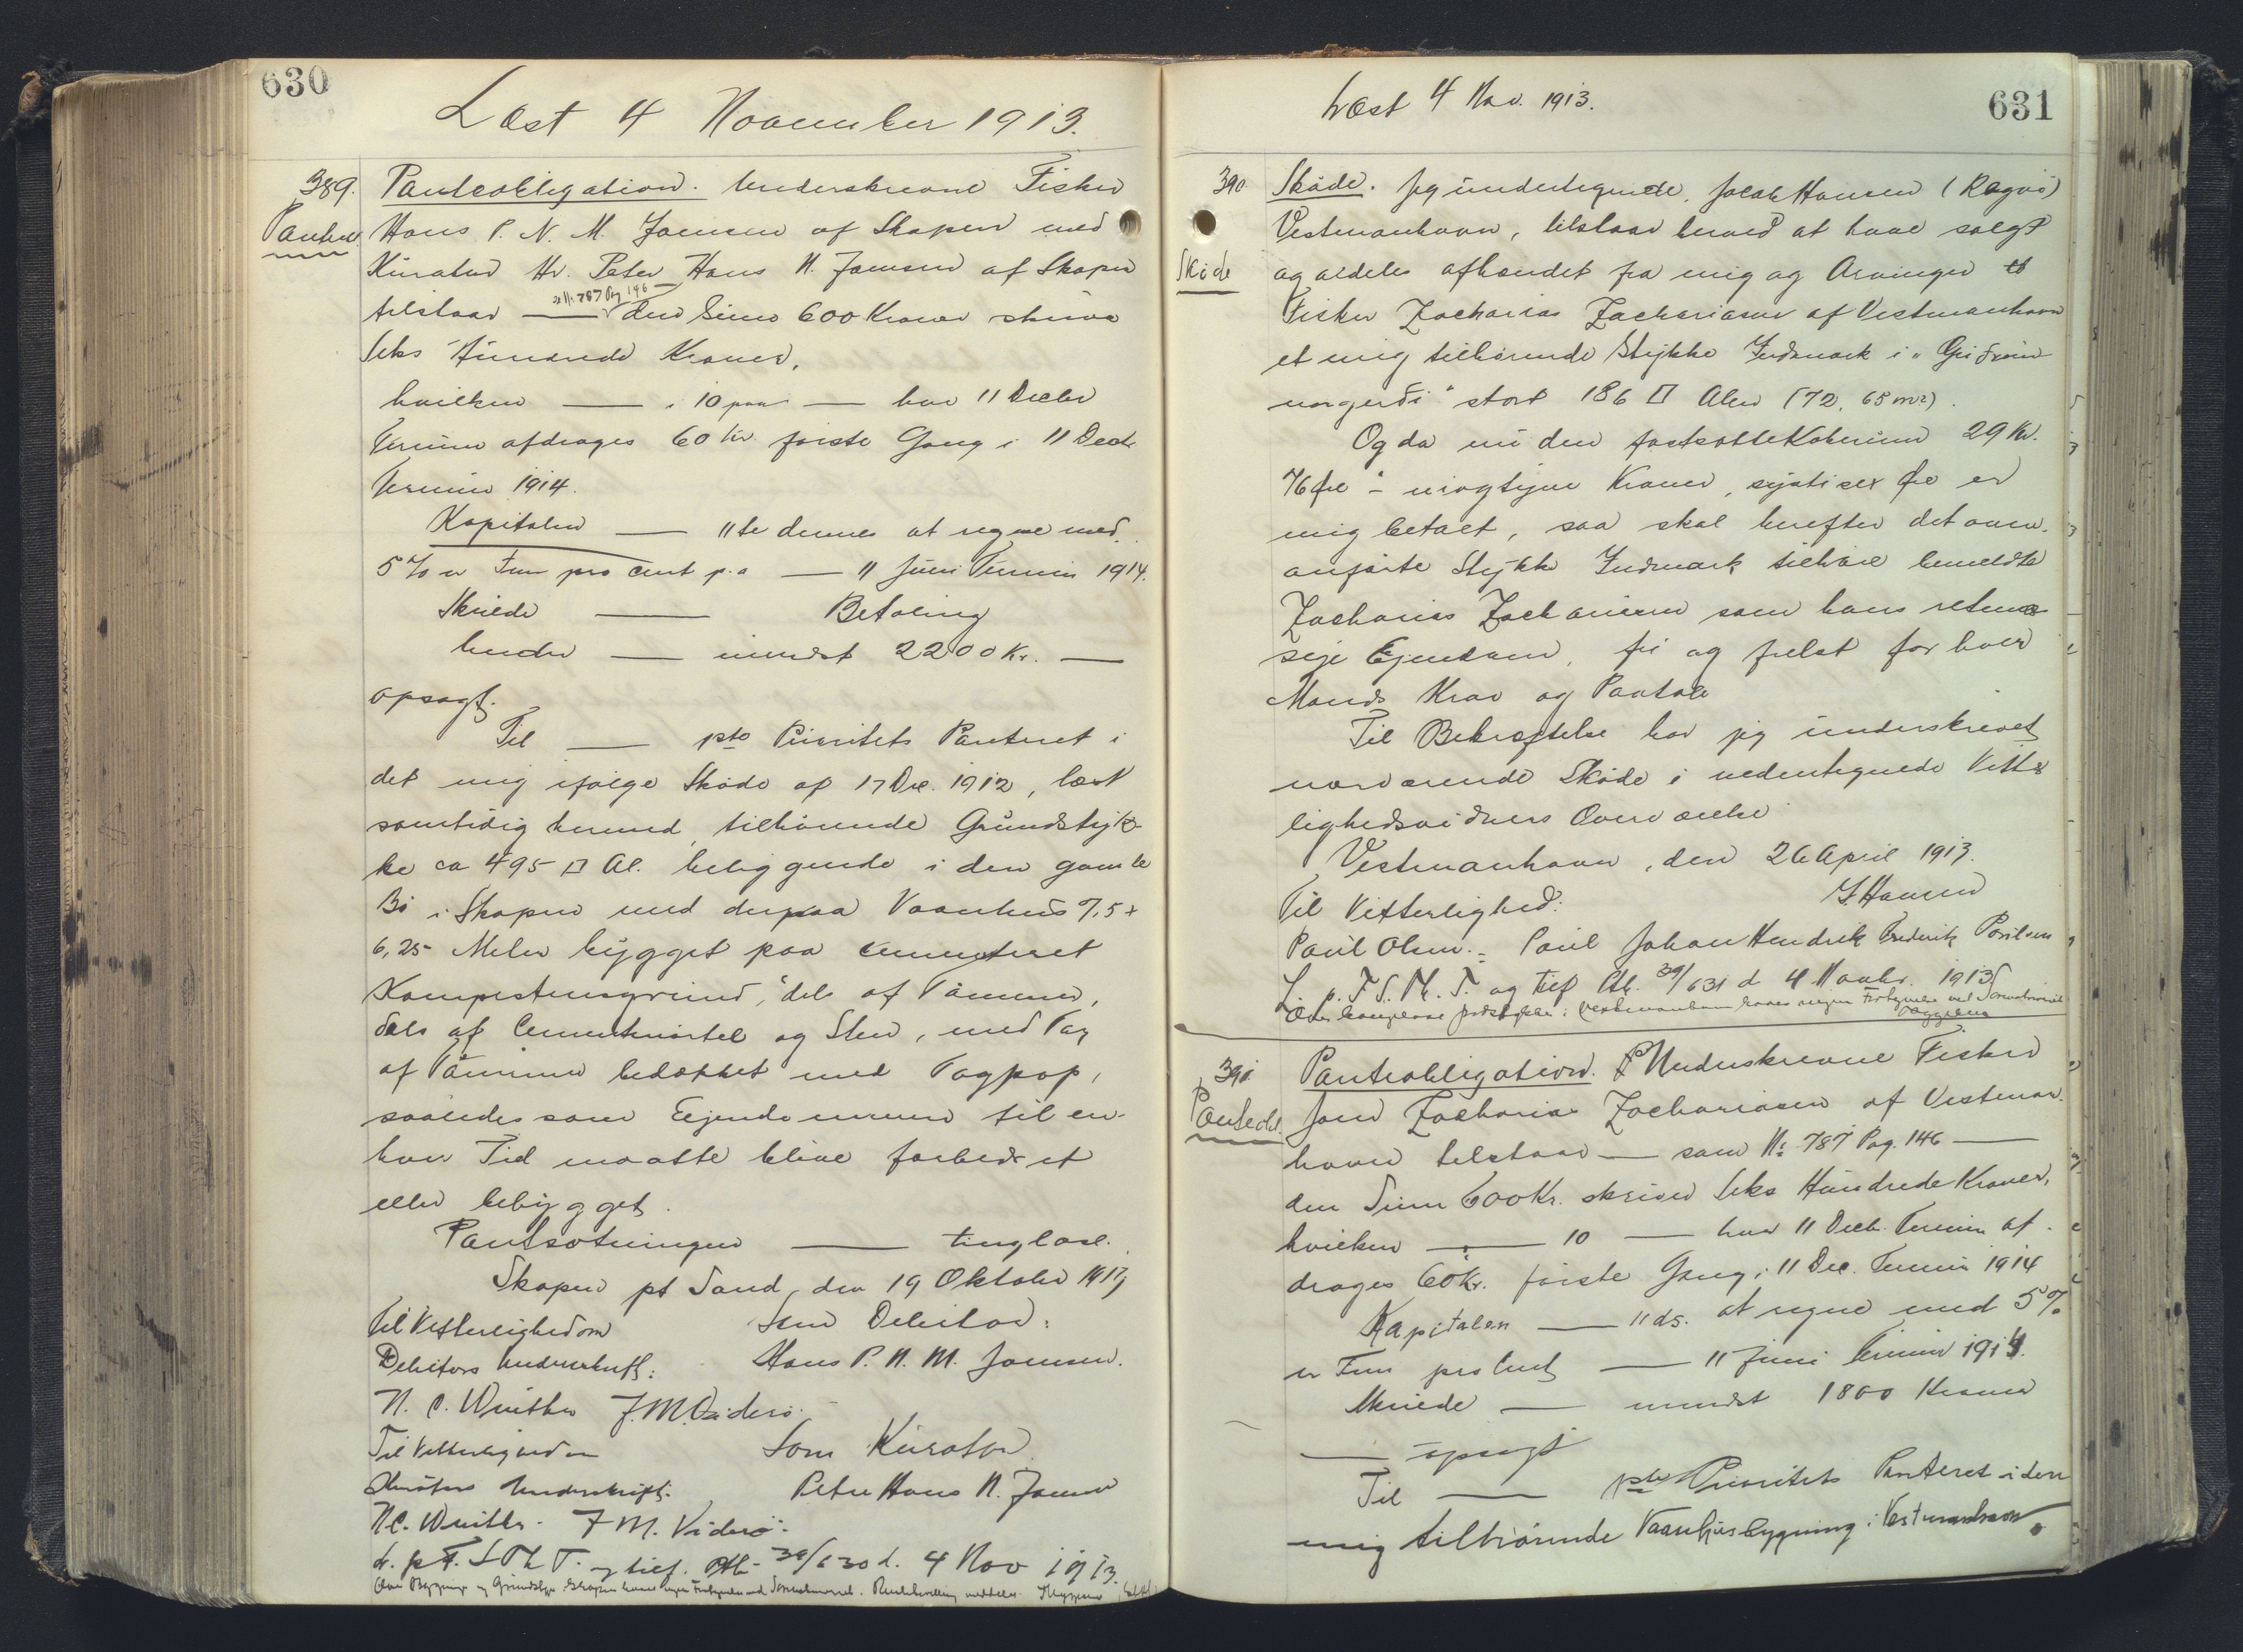 630
Læst 4 November 1913.
389. Panteobligation. Underskrevne Fisker
Panteobl. Hans P. N. M. Joensen af Skopen med
Kurator Hr. Peter Hans N. Joensen af Skopen
se N: 787 Pag 146
tilstaar — den Sum 600 Kroner skriver
Seks Hundrede Kroner,
hvilken — i 10 paa — hver 11 Decbr
Termin afdrages 60 Kr. første Gang i 11 Decbr
Termin 1914.
Kapitalen — 11te dennes at regne med
5 % er Fem pro cent p.a — 11 Juni Termin 1914.
Skulde — Betaling
under — mindst 2200 Kr. —
opsagt.
Til — pto Prioritets Panteret i
det mig ifølge Skøde af 17 Dec. 1912, læst
samtidig hermed, tilhørende Grundstyk-
ke ca 495 □ Al. beliggende i den gamle
Bø i Skopen med derpaa Vaanhus 7,5 x
6,25 Meter bygget paa cementeret
Kampestensgrund, dels af Tømmer,
dels af Cementmørtel og Sten, med Tag
af Tømmer bedækket med Tagpap,
saaledes som Ejendommen til en-
hver Tid maatte blive forbedret
eller bebygget.
Pantsætningen — tinglæse.
Skopen pt Sand, den 19 Oktober 1913
Til Vitterlighed om Som Debitor:
Debitors Underskrift: Hans P. N. M. Joensen.
N. C. Winther J. M. Viderø.
Til Vitterlighed om Som Kurator
Kurators Underskrift: Peter Hans N. Joensen
N. C. Winther. J M. Viderø.
L. p. F. S M T. og tilf. Prtk. 39/630 d. 4 Nov 1913.
631
Læst 4 Nov. 1913.
390. Skøde. Jeg undertegnede, Jacob Hansen (Ragnö)
Skøde
Vestmanhavn, tilstaar herved at have solgt
og aldeles afhændet fra mig og Arvinger til
Fisker Zacharias Zachariasen af Vestmanhavn
et mig tilhørende Stykke Indmark i
stort 186 □ Alen (72,65 m2).
Og da nu den fastsatte Købesum 29 Kr.
76 Øre - niogtyve Kroner, sytisex Øre er
mig betalt, saa skal herefter det oven-
anførte Stykke Indmark tilhøre bemeldte
Zacharias Zachariasen som hans retmæs
sige Ejendom, fri og frelst for hver
Mands Krav og Paatale
Til Bekræftelse har jeg underskrevet
nærværende Skøde i nedentegnede Vitter
lighedsvidners Overværelse
Vestmanhavn, den 26 April 1913.
Til Vitterlighed: J. Hansen
Poul Olsen. Poul Johan Hendrik Frederik Poulsen
L. p. F. S. M. T. og tilf. Ptk. 39/631 d 4 Novbr. 1913
391. Panteobligation. Underskrevne Fisker
Panteobl. Joen Zacharias Zachariasen af Vestman-
havn tilstaar — som N: 787 Pag. 146 —
den Sum 600 Kr. skriver Seks Hundrede Kroner,
hvilken — 10 — hver 11 Decb. Termin af-
drages 60 Kr. første Gang i 11 Dec. Termin 1914
Kapitalen — 11 ds. at regne med 5 %
er Fem pro Cent — 11 Juni Termin 1914.
Skulde — mindst 1800 Kroner
— opsagt
Til — pto Prioritets Panteret i den
mig tilhørende Vaanhusbygning i Vestmanhavn